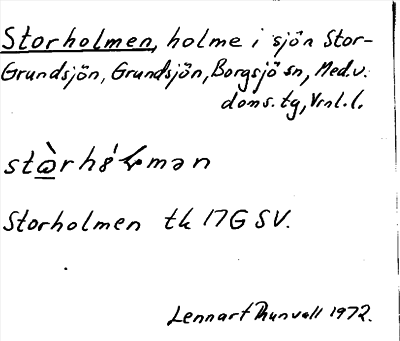 Storholmen, holme i sjön Stor-
Grundsjön, Grundsjön, Borgsjö sn, Med.v.
doms. tg, Vrnl. l.
Storholmen tk 17G SV.
Lennart Thunvall 1972.